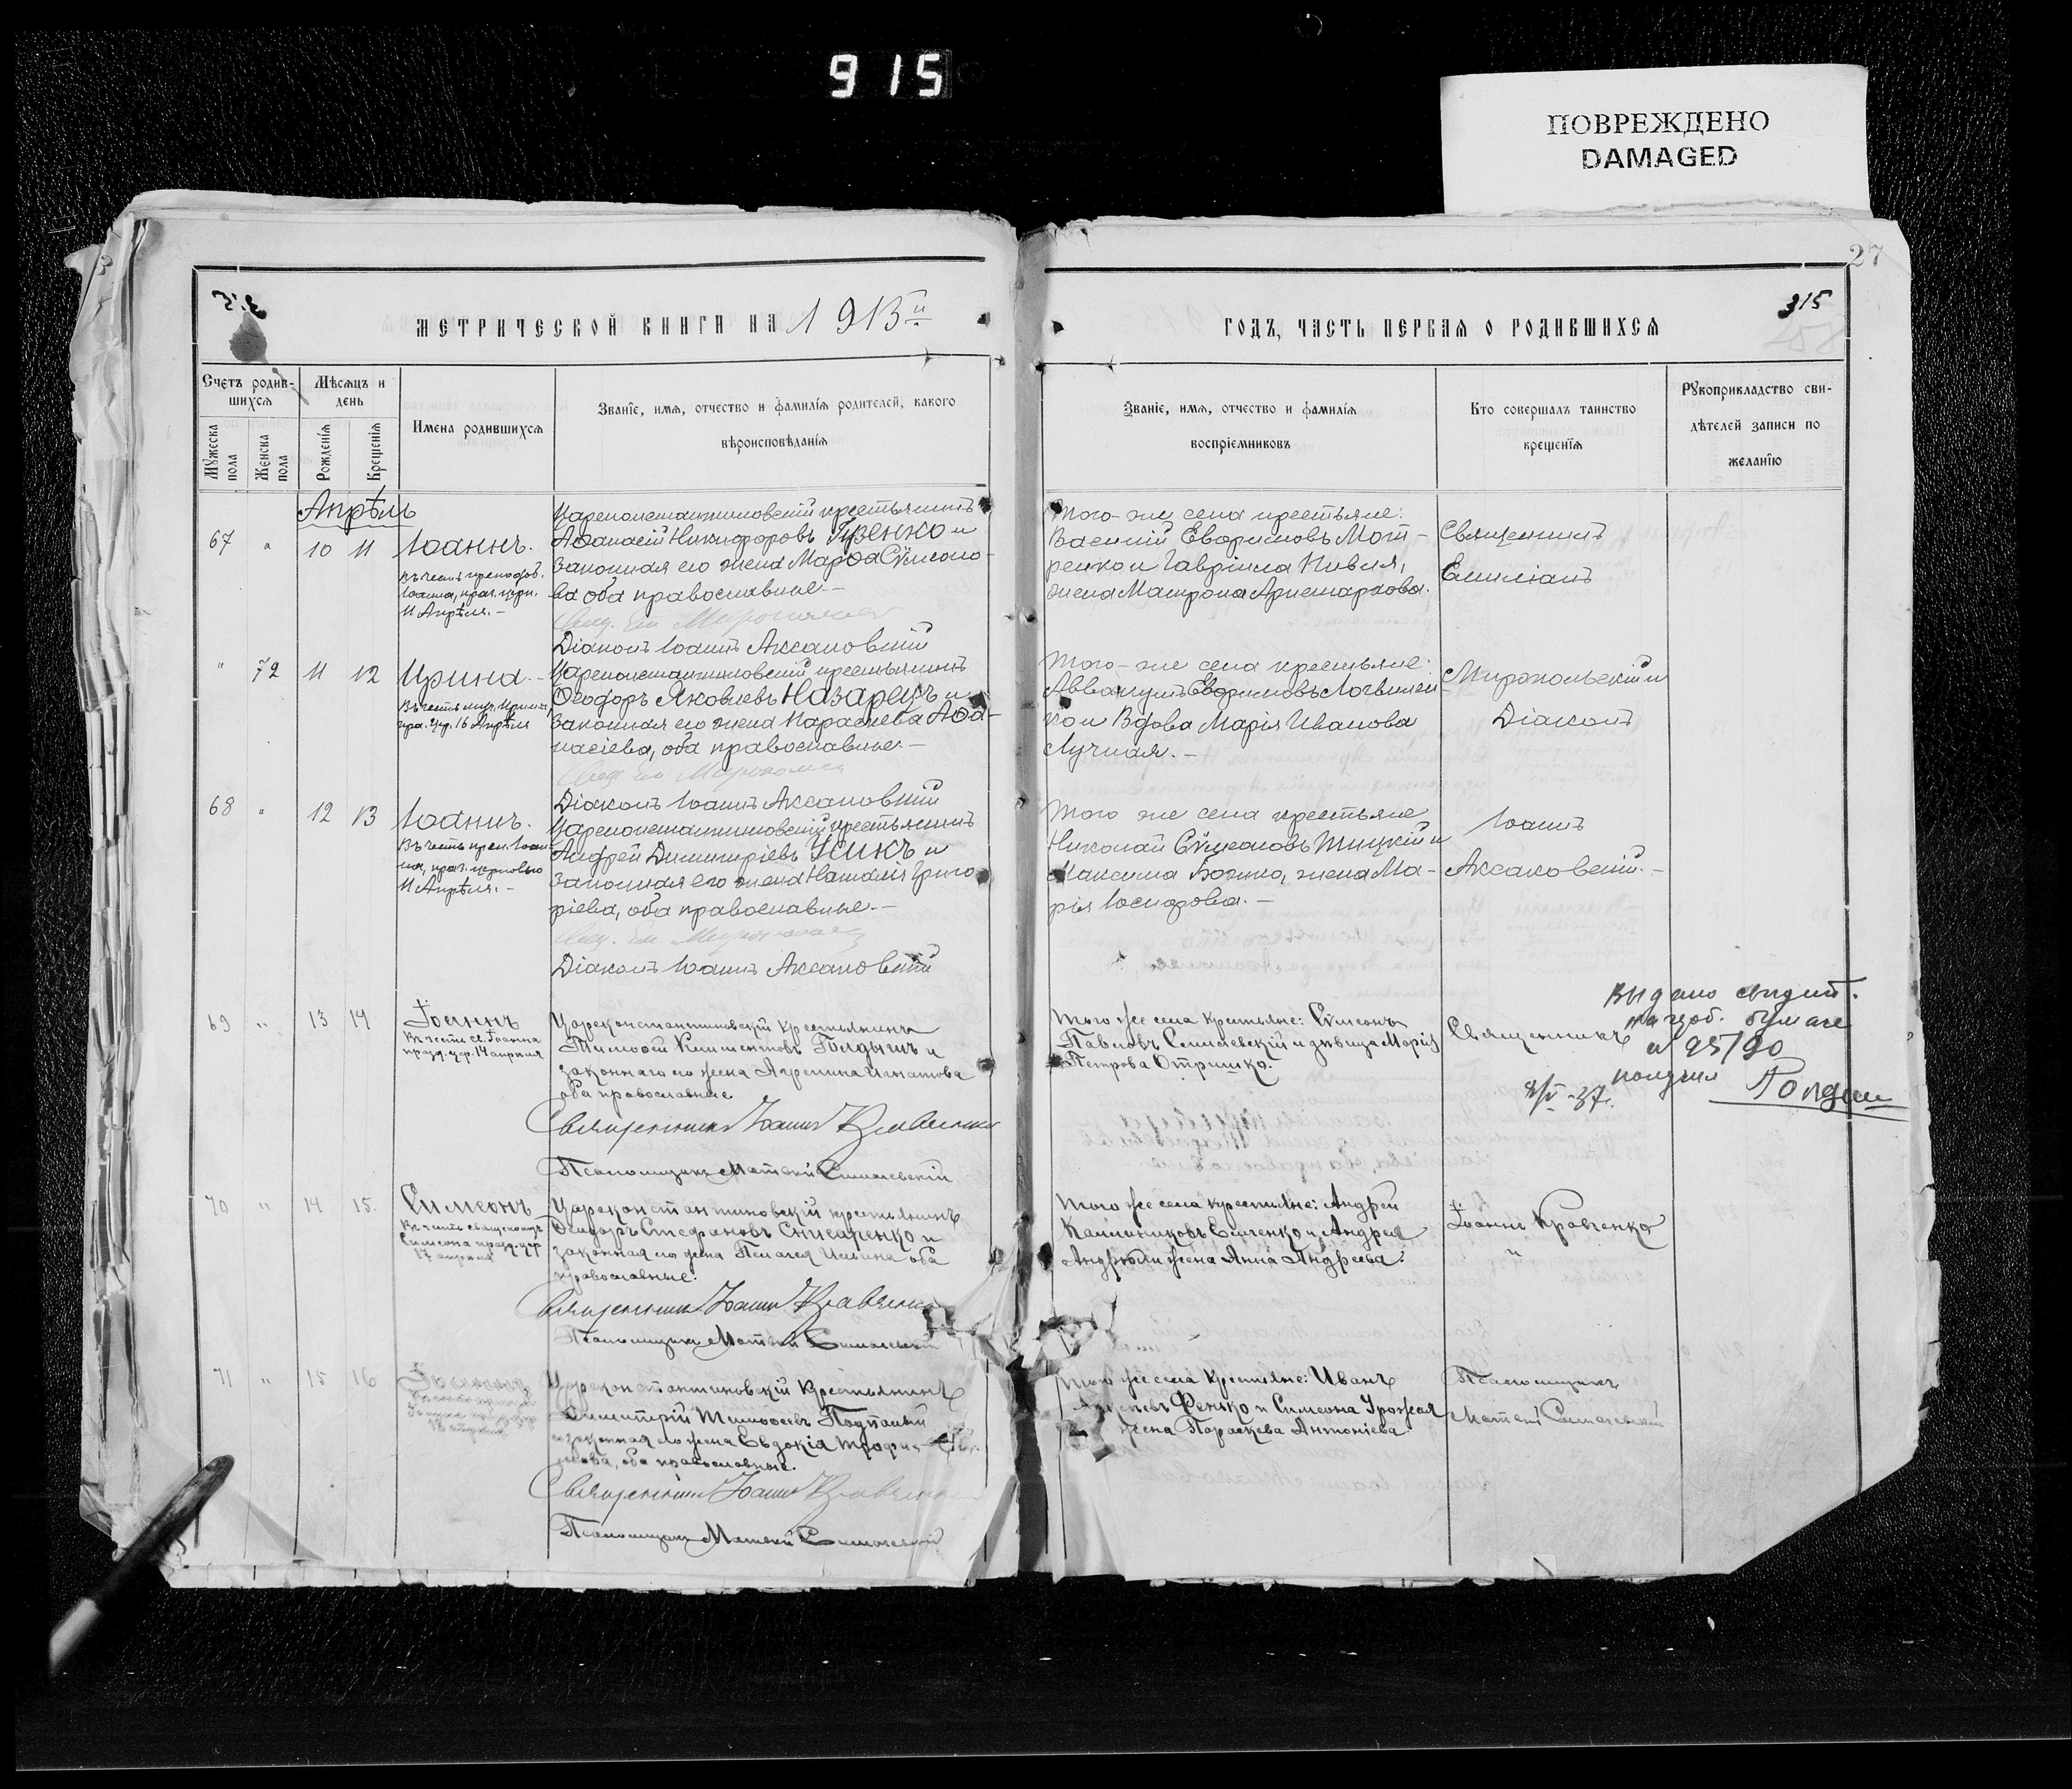 915
ПОВРЕЖДЕНО
DAMAGED
27
315
МЕТРИЧЕСКОЙ КНИГИ НА 1913й
ГОДЪ, ЧАСТЬ ПЕРВАЯ О РОДИВШИХСЯ
315
Счетъ родив-
шихся
Мѣсяцъ и
день
Мужеска пола
Женска пола
Рожденія
Крещенія
Имена родившихся
Званіе, имя, отчество и фамилія родителей, какого
вѣроисповѣданія
Званіе, имя, отчество и фамилія
воспріемниковъ
Кто совершалъ таинство
крещенія
Рукоприкладство сви-
дѣтелей записи по
желанію
Апрѣль
67 " 10 11 Іоаннъ.
Въ честь преподоб.
Іоанна, праз. церк.
11 Апрѣля.-
Цареконстантиновскій крестьянинъ
Аѳанасій Никифоровъ и
законная его жена Марѳа Сѵмеоно-
ва оба православные.-
Діаконъ Іоаннъ Аксаковскій
Того-же села крестьяне:
Василій Евфимовъ Мот-
ренко и Гавріила Кивля,
жена Матрона Аристархова.
Священникъ
Емиліанъ
" 72 11 12 Ирина.-
Въ честь муч. Ирины,
пра. цер. 16 Апрѣля
Цареконстантиновскій крестьянинъ
Ѳеодоръ Яковлевъ Назарецъ и
законная его жена Параскева Аѳа-
насіева, оба православные.-
Діаконъ Іоаннъ Аксаковскій
Того-же села крестьяне:
Аввакумъ Евфимовъ Логвинен
ко и Вдова Марія Иванова
Лучная.-
Миропольскій и
Діаконъ
68 " 12 13 Іоаннъ.
Въ честь преп. Іоан-
на, праз. церковью
11 Апрѣля.-
Цареконстантиновскій крестьянинъ
Андрей Димитріевъ Усикъ и
законная его жена Наталія Григо
ріева, оба православные.-
Діаконъ Іоаннъ Аксаковскій
Того же села крестьяне
Николай Сѵмеоновъ Тицкій и
Максима Божко, жена Ма-
рія Іосифова.-
Іоаннъ
Аксаковскій.-
69 " 13 14 Іоаннъ
Въ честь св. Іоанна
празд. цер. 14 апрѣля
Цареконстантиновскій крестьянинъ
Тимоѳей Климентовъ Голдышъ и
законная его жена Агрепина Игнатова
оба православные
Священникъ Іоаннъ Кравченко
Псаломщикъ Матѳей
Того же села крестьяне: Сѵмеонъ
Павловъ и дѣвица Марія
Петрова Отришко.
Священникъ
Выдано свидет.
на гербов. бумаге
№ 25/90
получил
37.
70 " 14 15. Симеонъ
Въ честь священномуч.
Симеона празд. цер
17 апрѣля
Цареконстантиновскій крестьянинъ
Ѳеодоръ Стефановъ Снисаренко и
законная его жена Пелагея Ильина оба
православные.
Священникъ Іоаннъ Кравченко
Псаломщикъ Матѳей
Того же села крестьяне: Андрей
Каллиниковъ Емченко и Андрея
жена Анна Андреева.
Іоаннъ Кравченко
и
71 " 15 16
Цареконстантиновскій крестьянинъ
Димитрій Тимоѳеевъ и
законная его жена Евдокія Трофи-
мова, оба православные.
Священникъ Іоаннъ Кравченко
Псаломщикъ Матѳей
Того же села крестьяне: Иванъ
Фенько и Симеона
жена Параскева Антоніева.
Псаломщикъ
Матѳей